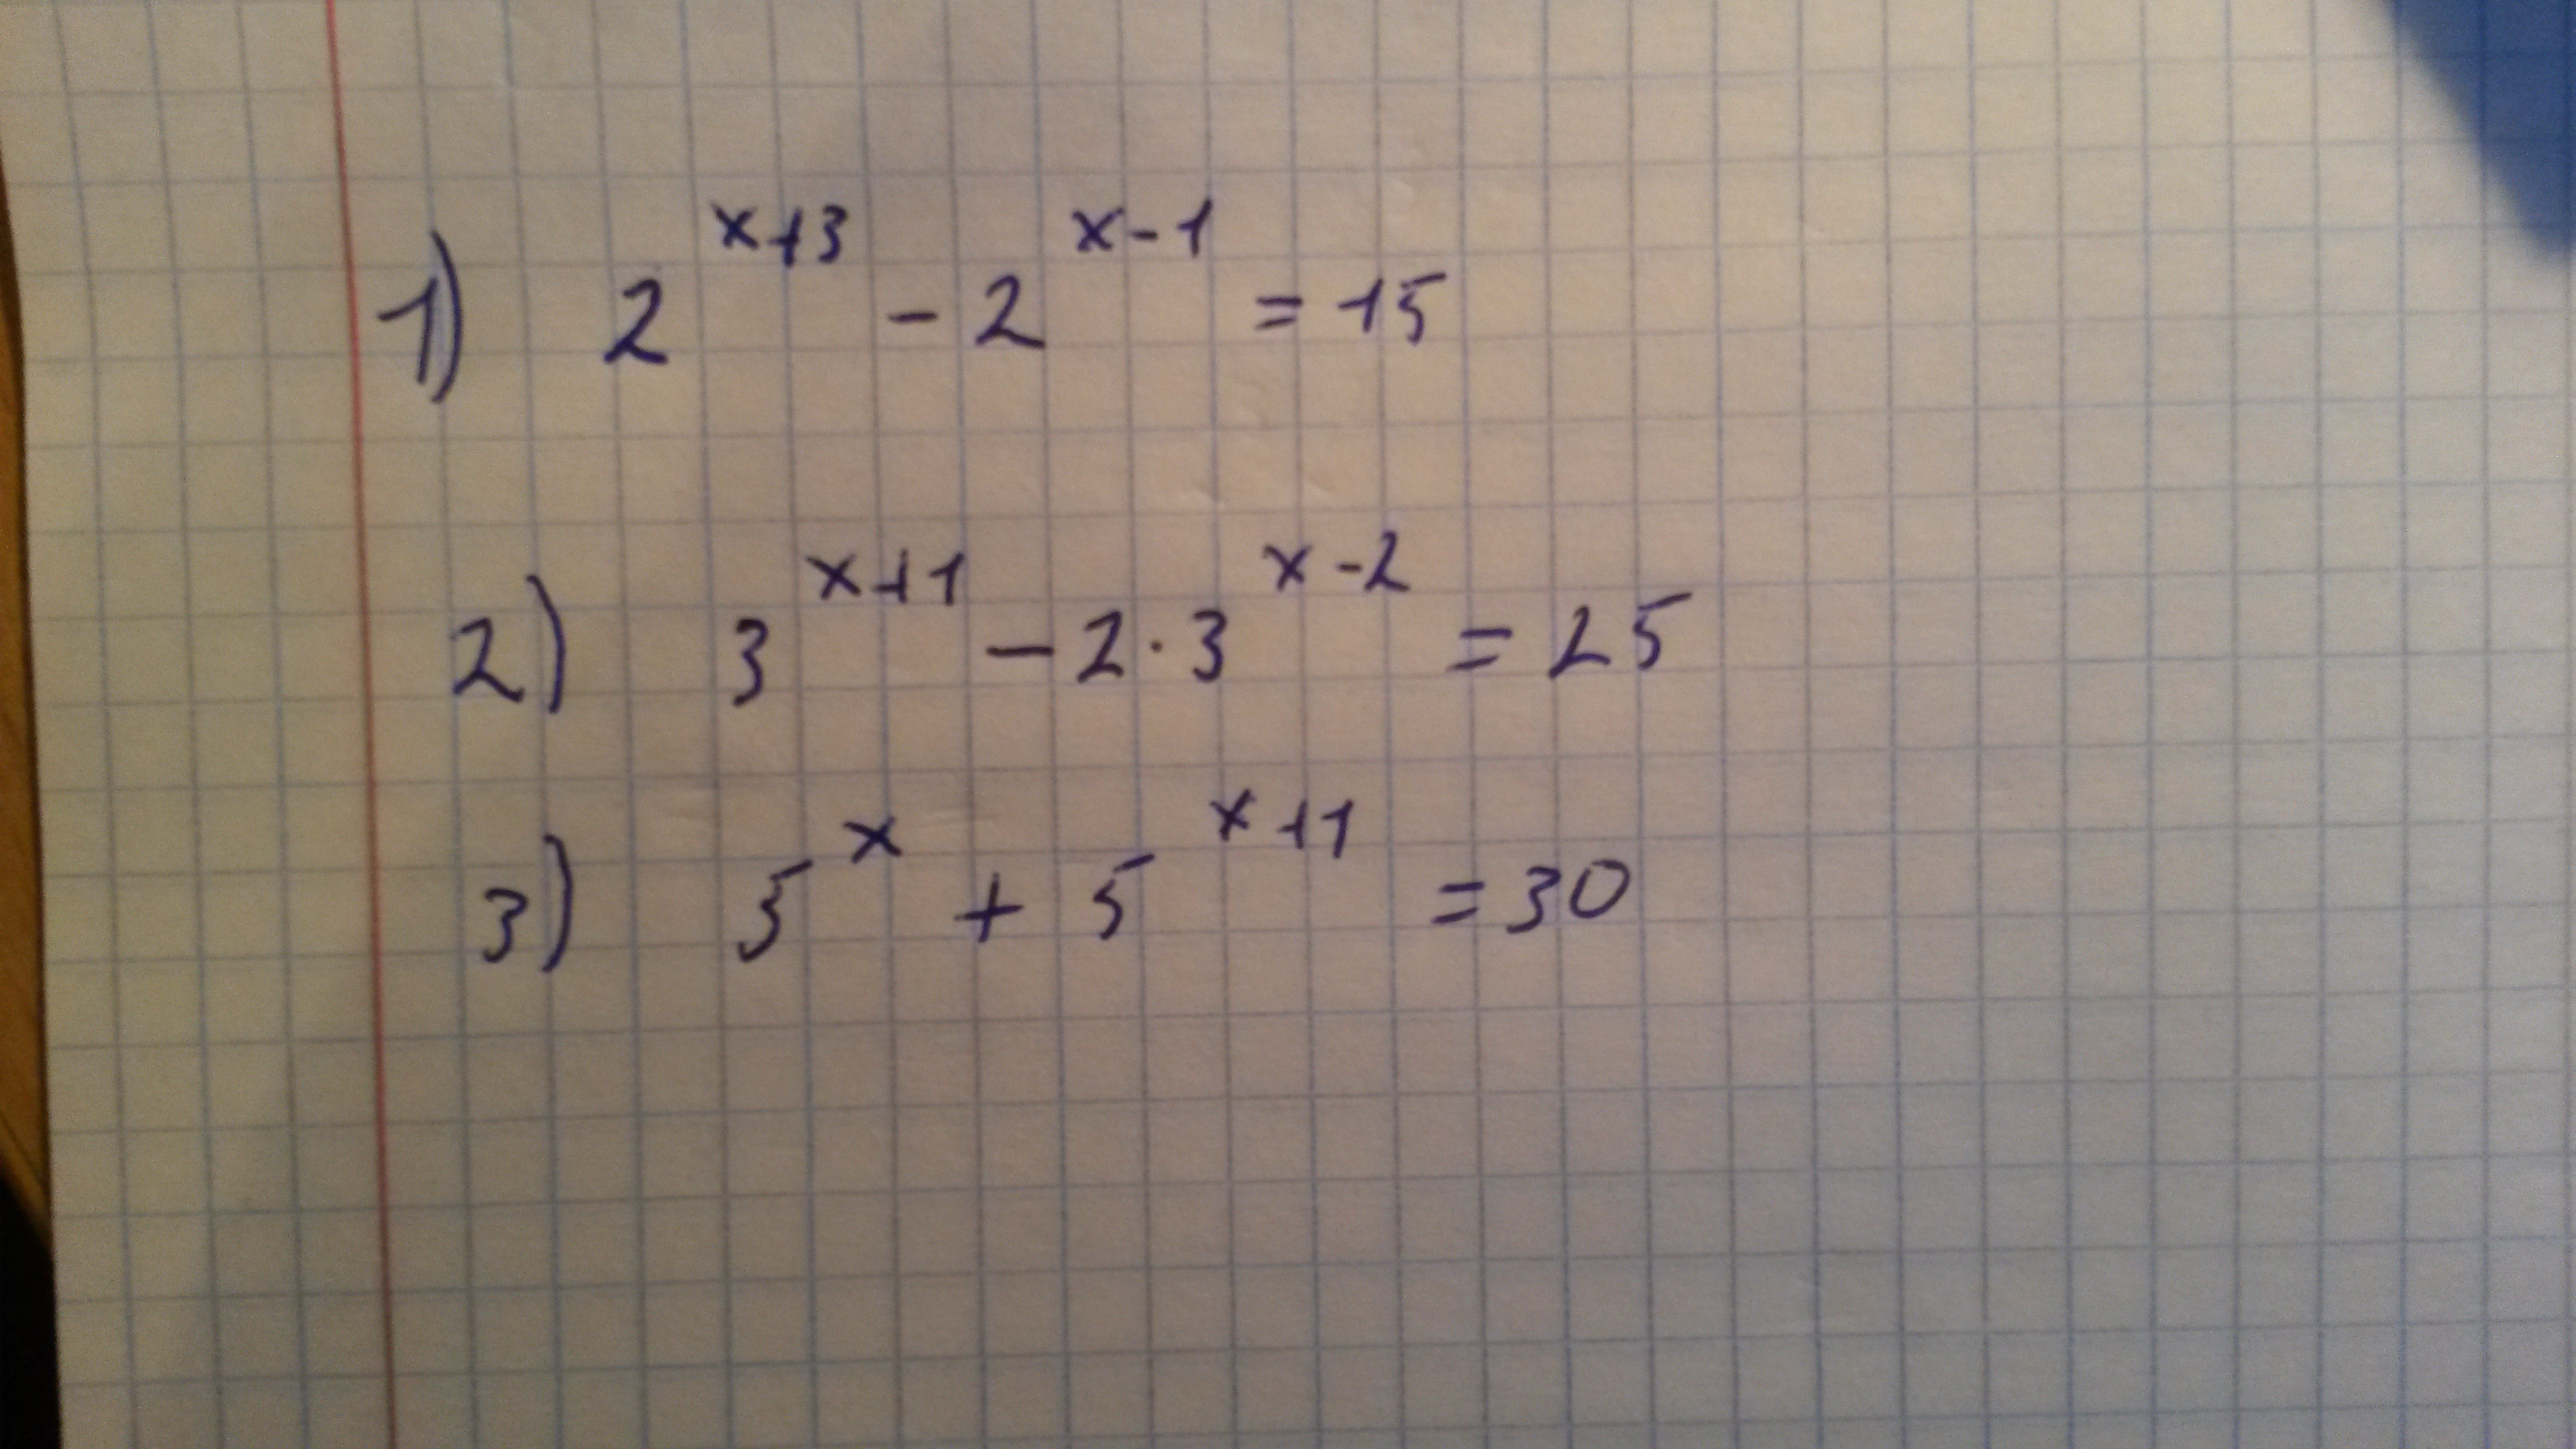 1) 2^{x+3} - 2^{x-1} = 15
2) 3^{x+1} - 2·3^{x-2} = 25
3) 5^x + 5^{x+1} = 30